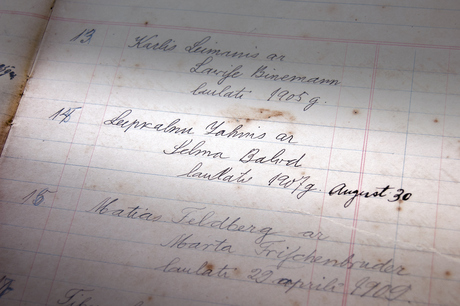 13. Karlis Leimanis ar
Lavife Binemann
laulati 1905 g.
14. Leepkalnu Jahnis ar
Selma Balod
laulati 1907 g August 30
15 Matias Feldberg ar
Marta Frischenbruder
laulati 22 aprili 1909